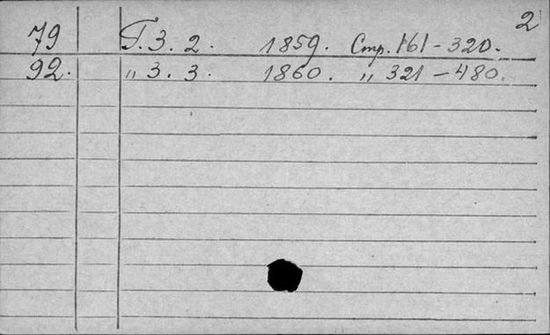 2
79 Т. 3. 2. 1859. Стр. 161-320.
92. „ 3. 3. 1860. „ 321-480.